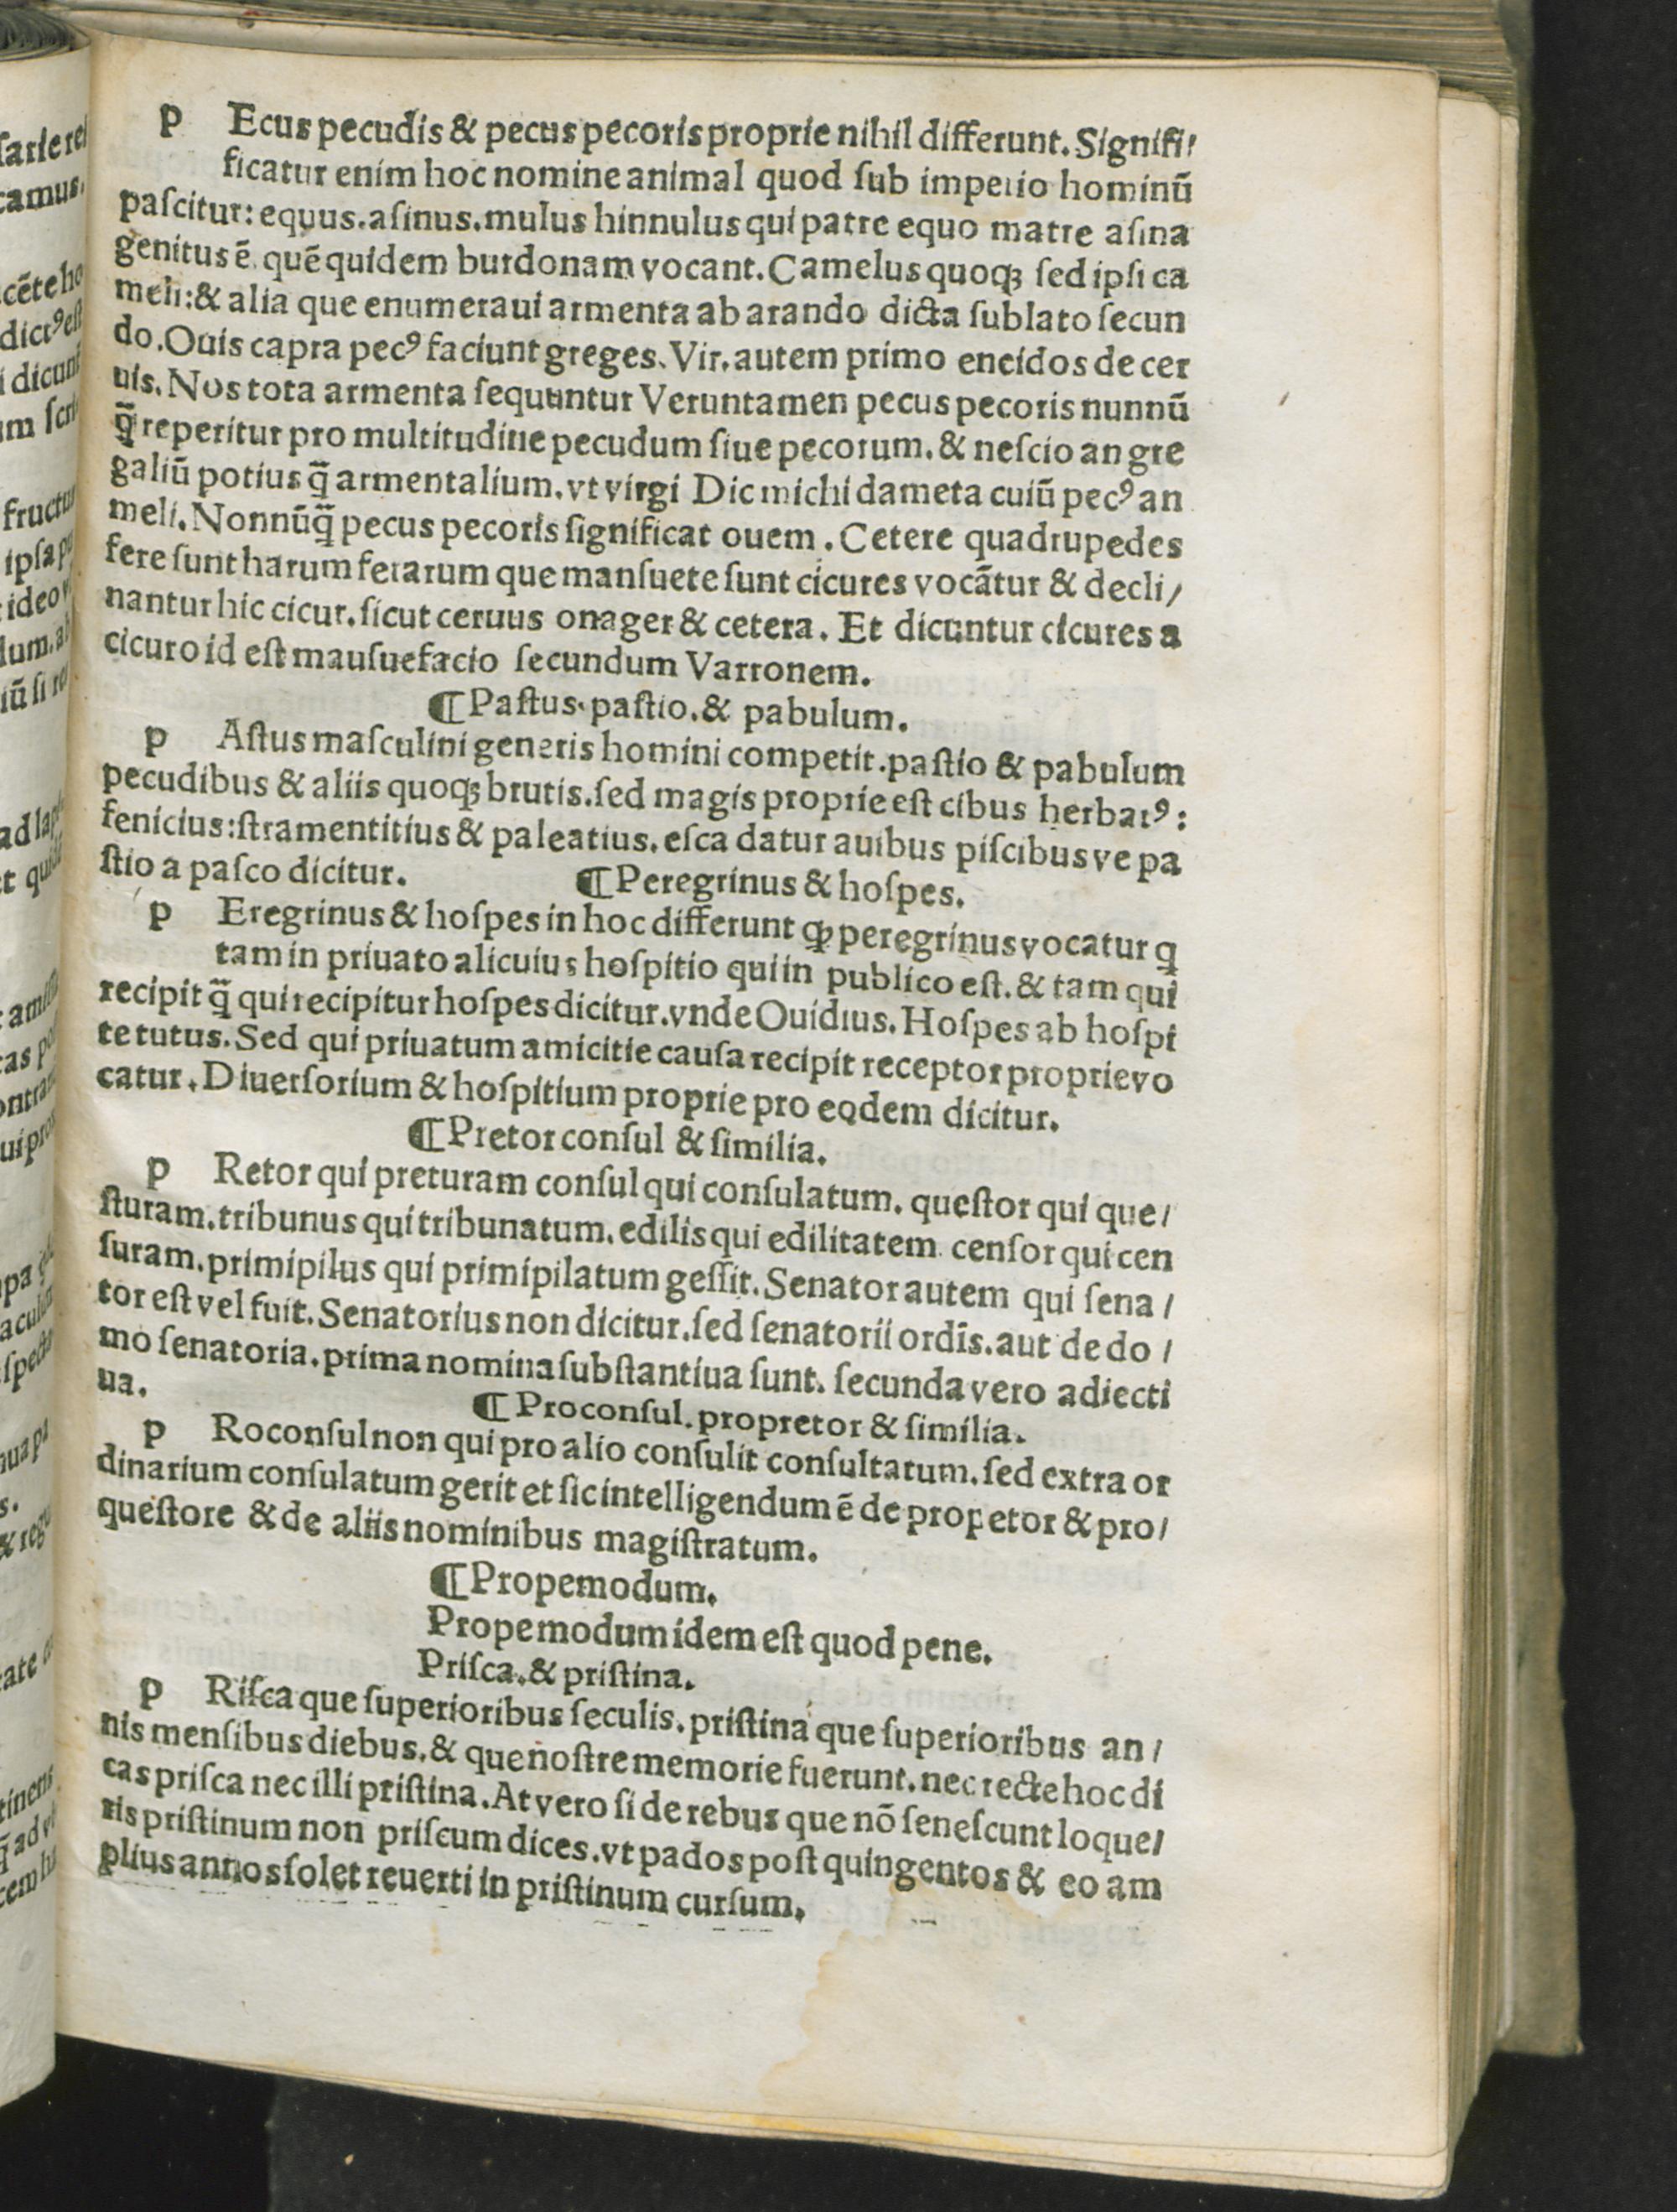 p Ecus pecudis & pecus pecoris proprie nihil differunt. Signifi/
ficatur enim hoc nomine animal quod ſub imperio hominū
paſcitur: equus. aſinus. mulus hinnulus qui patre equo matre aſina
genitus ē. quē quidem burdonam vocant. Camelus quoqꝫ ſed ipſi ca
meli: & alia que enumeraui armenta ab arando dicta ſublato ſecun
do. Ouis capra pecꝰ faciunt greges. Vir. autem primo eneidos de cer
uis. Nos tota armenta ſequuntur Veruntamen pecus pecoris nunnū
q̄ reperitur pro multitudine pecudum ſiue pecorum. & neſcio an gre
galiū potius q̄ armentalium. vt virgi Dic michi dameta cuiū pecꝰ an
meli. Nonnūq̄ pecus pecoris ſignificat ouem. Cetere quadrupedes
fere ſunt harum ferarum que manſuete ſunt cicures vocātur & decli/
nantur hic cicur. ſicut ceruus onager & cetera. Et dicuntur cicures a
cicuro id eſt mauſuefacio ſecundum Varronem.
¶ Paſtus. paſtio. & pabulum.
p Aſtus maſculini generis homini competit. paſtio & pabulum
pecudibus & aliis quoqꝫ brutis. ſed magis proprie eſt cibus herbarꝰ:
fenicius: ſtramentitius & paleatius. eſca datur auibus piſcibus ve pa
ſtio a paſco dicitur. ¶ Peregrinus & hoſpes.
p Eregrinus & hoſpes in hoc differunt ꝙ peregrinus vocatur q
tam in priuato alicuius hoſpitio qui in publico eſt. & tam qui
recipit q̄ qui recipitur hoſpes dicitur. vnde Ouidius. Hoſpes ab hoſpi
te tutus. Sed qui priuatum amicitie cauſa recipit receptor proprie vo
catur. Diuerſorium & hoſpitium proprie pro eodem dicitur.
¶ Pretor conſul & ſimilia.
p Retor qui preturam conſul qui conſulatum. queſtor qui que/
ſturam. tribunus qui tribunatum. edilis qui edilitatem. cenſor qui cen
ſuram. primipilus qui primipilatum geſſit. Senator autem qui ſena/
tor eſt vel fuit. Senatorius non dicitur. ſed ſenatorii ordīs. aut de do/
mo ſenatoria. prima nomina ſubſtantiua ſunt. ſecunda vero adiecti
ua. ¶ Proconſul. propretor & ſimilia.
p Roconſul non qui pro alio conſulit conſultatum. ſed extra or
dinarium conſulatum gerit et ſic intelligendum ē de propetor & pro/
queſtore & de aliis nominibus magiſtratum.
¶ Propemodum.
Propemodum idem eſt quod pene.
Priſca. & priſtina.
p Riſca que ſuperioribus ſeculis. priſtina que ſuperioribus an/
nis menſibus diebus. & que noſtre memorie fuerunt. nec recte hoc di
cas priſca nec illi priſtina. At vero ſi de rebus que nō ſeneſcunt loque/
ris priſtinum non priſcum dices. vt pados poſt quingentos & eo am
plius annos ſolet reuerti in priſtinum curſum.